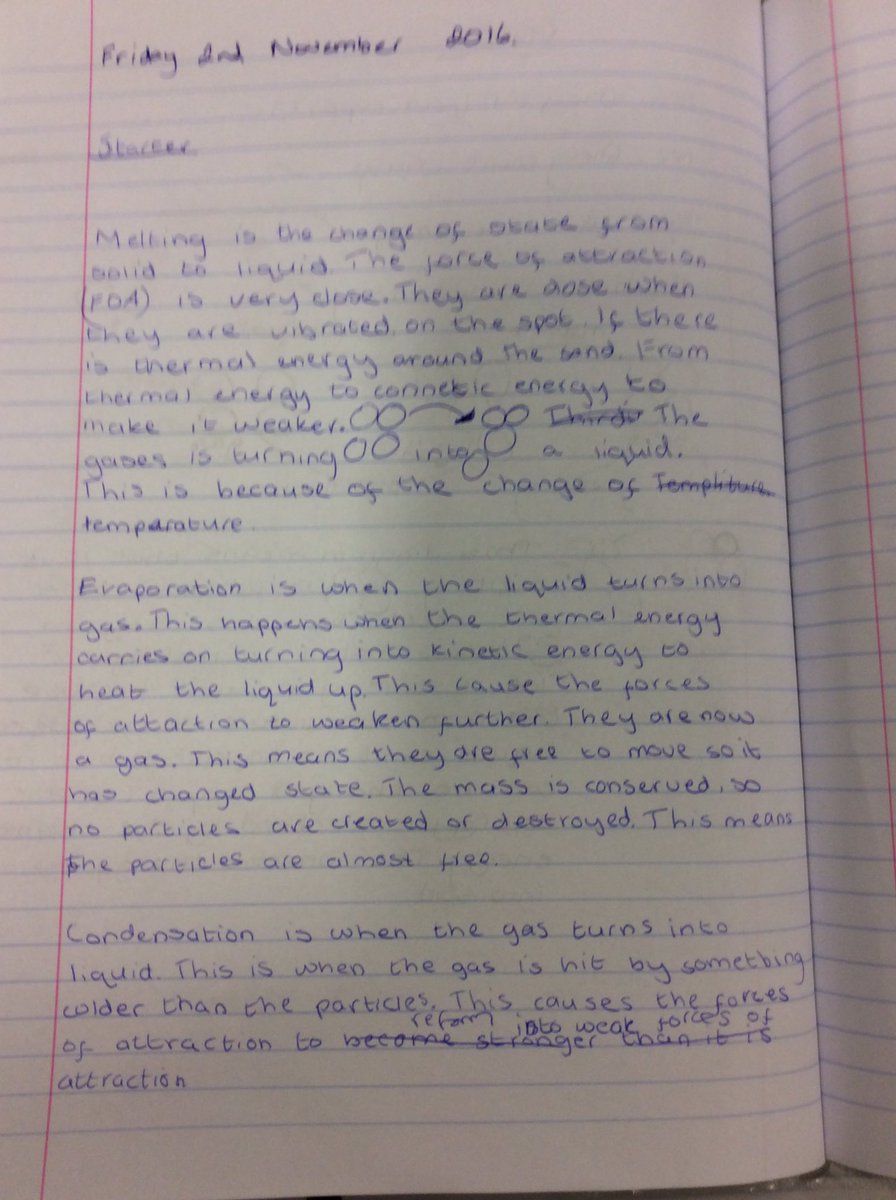 Friday 2nd November 2016.
Starter
Melting is the change of state from
solid to liquid. The force of attraction
(FOA) is very close. They are close when
they are vibrated on the spot. If there
is thermal energy around the sand. From
thermal energy to connetic energy to
make it weaker. The
gases is turning into a liquid.
This is because of the change of Templiture
temparature.
Evaporation is when the liquid turns into
gas. This happens when the thermal energy
carries on turning into kinetic energy to
heat the liquid up. This cause the forces
of attaction to weaken further. They are now
a gas. This means they are free to move so it
has changed state. The mass is conserved, so
no particles are created or destroyed. This means
the particles are almost free.
Condensation is when the gas turns into
liquid. This is when the gas is hit by something
colder than the particles. This causes the forces
reform into weak forces of
of attraction to become stronger than it is
attraction